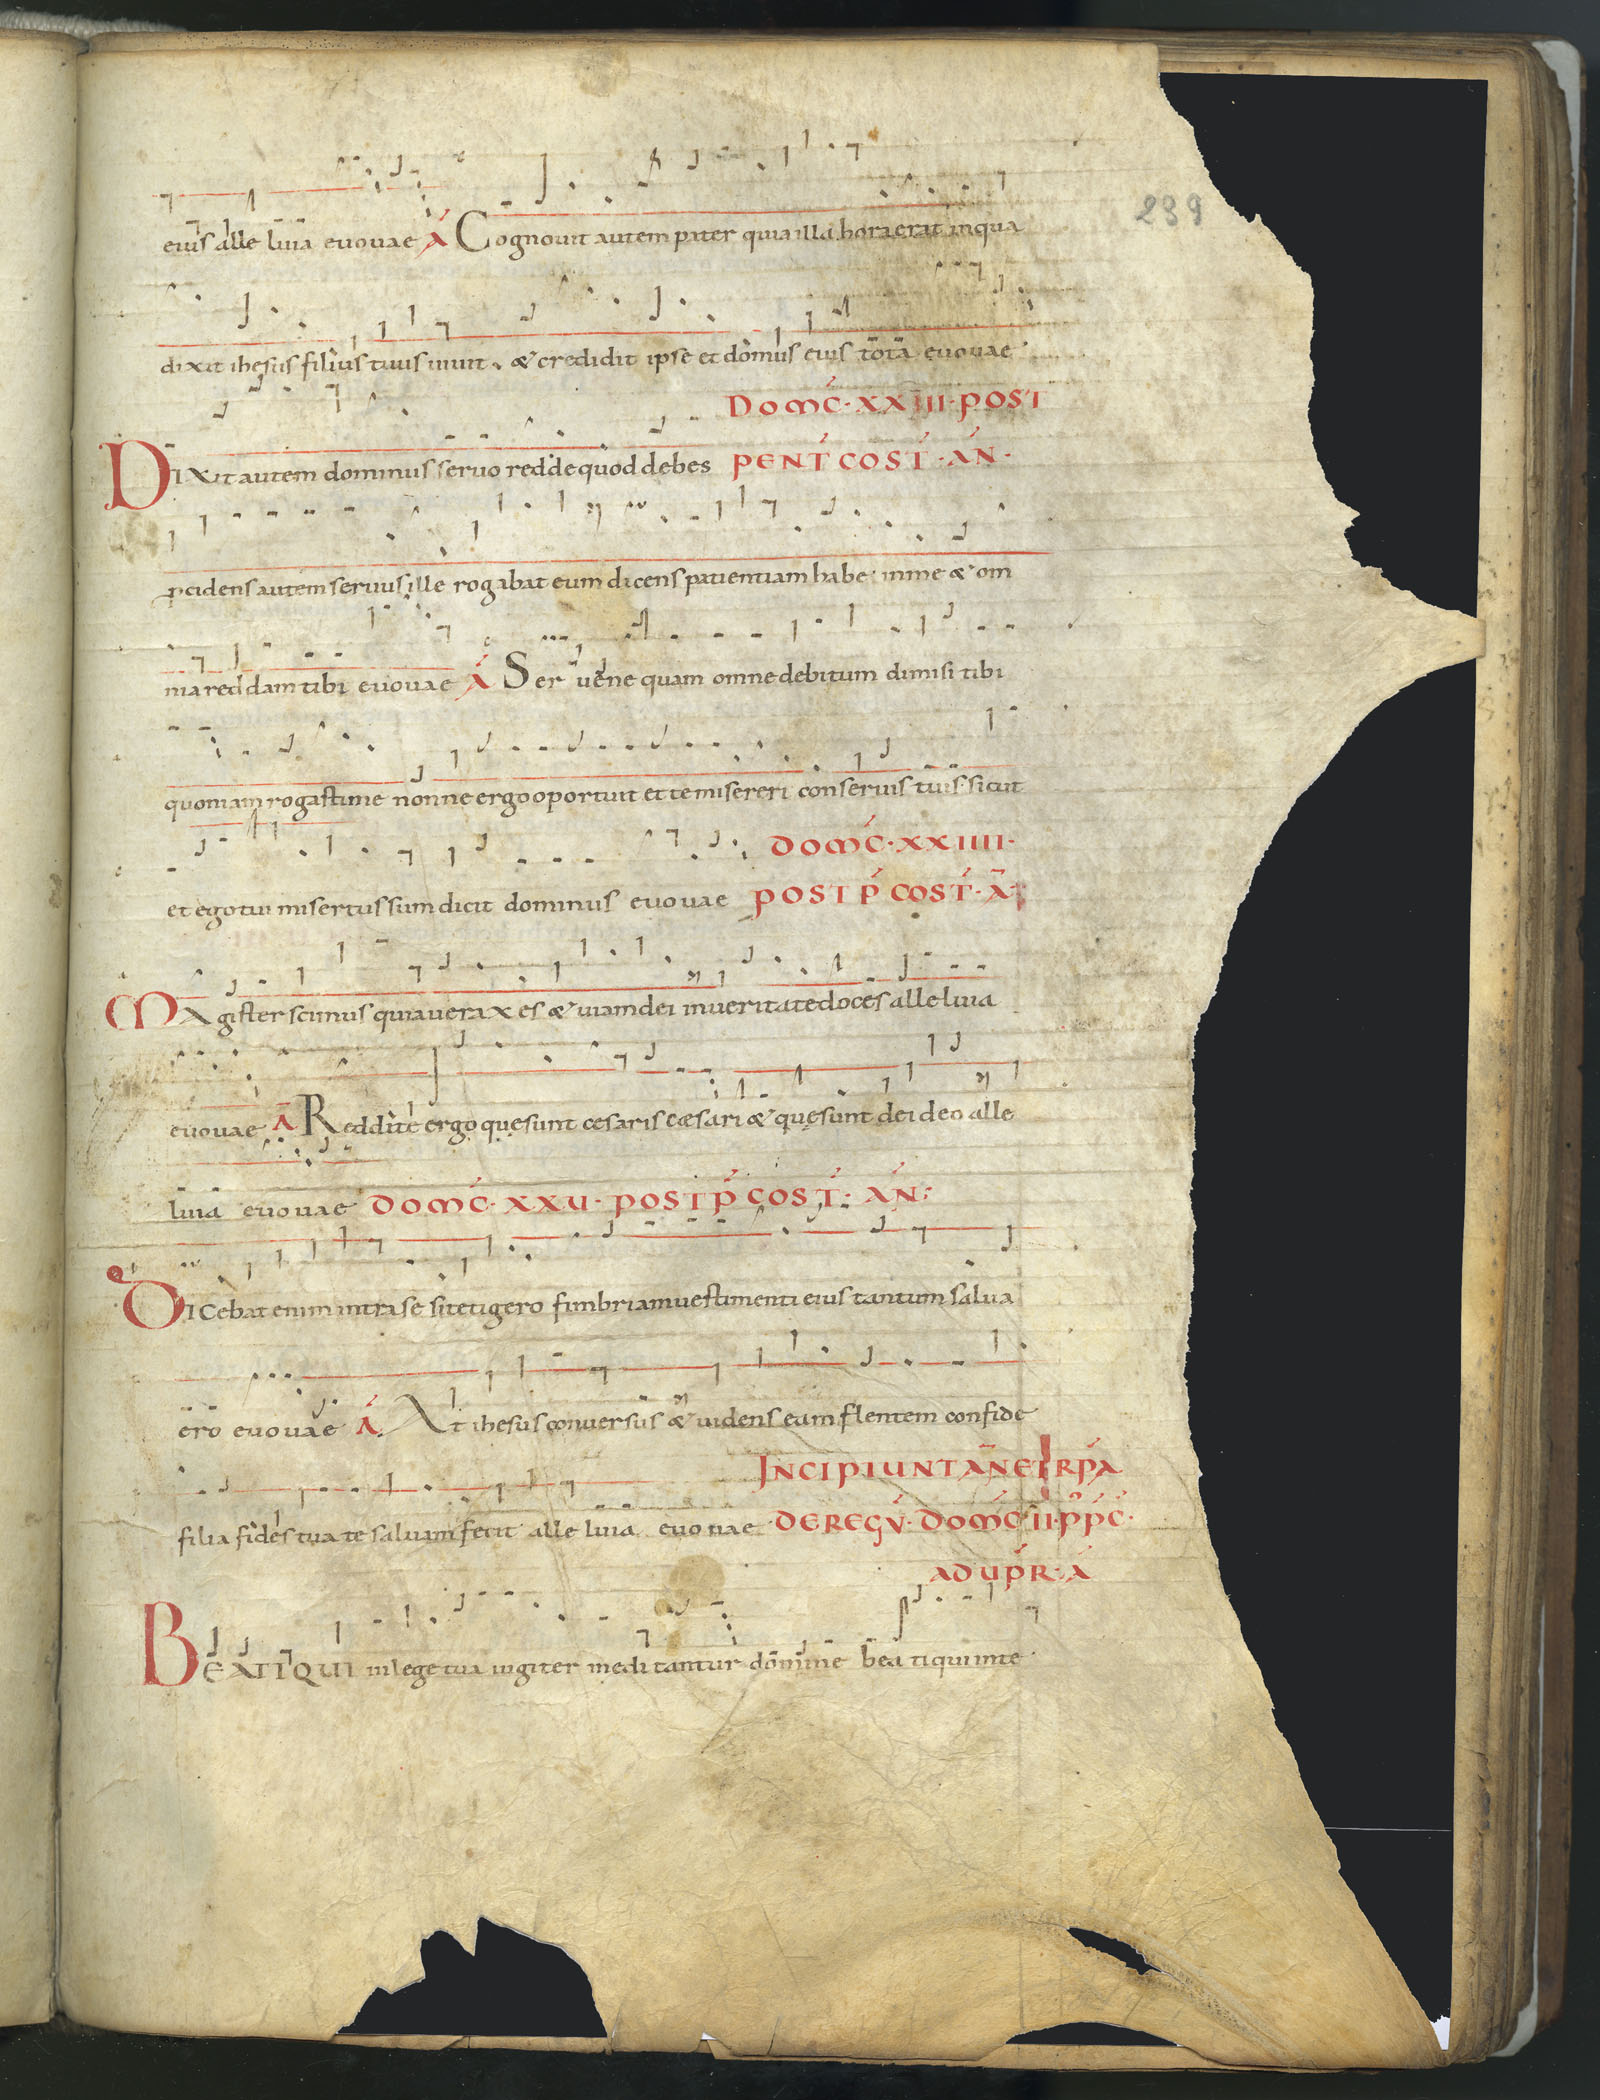 239
eius alle luia euouae A Cognouit autem pater quia illa hora erat in qua
dixit ihesus filius tuus uiuit. & credidit ipse et domus eius tota euouae
DOMC·XXIII·POST
DIXit autem dominus seruo redde quod debes PENTCOST·AN·
pcidens autem seruus ille rogabat eum dicens patientiam habe inme & om
nia reddam tibi euouae A Ser ue ne quam omne debitum dimisi tibi
quoniam rogasti me nonne ergo oportuit et te misereri conseruis tuis. sicut
DOMC·XXIIII·
et ego tui misertus sum dicit dominus euouae POST P COST·A·
MAgister scimus quia uerax es & uiam dei in ueritate doces alleluia
euouae A Reddite ergo que sunt cesaris cæsari & que sunt dei deo alle
luia euouae DOMC·XXU·POST P COST·AN:
DICebat enim intra se si tetigero fimbriam uestimenti eius tantum salua
ero euouae A At ihesus conuersus & uidens eam flentem confide
INCIPIUNT AN ET RPA
filia fides tua te saluam fecit alle luia euouae DE REGU·DOMC II·PPC·
AD UPR·A
BEATI QUI in lege tua iugiter meditantur domine bea ti qui in te